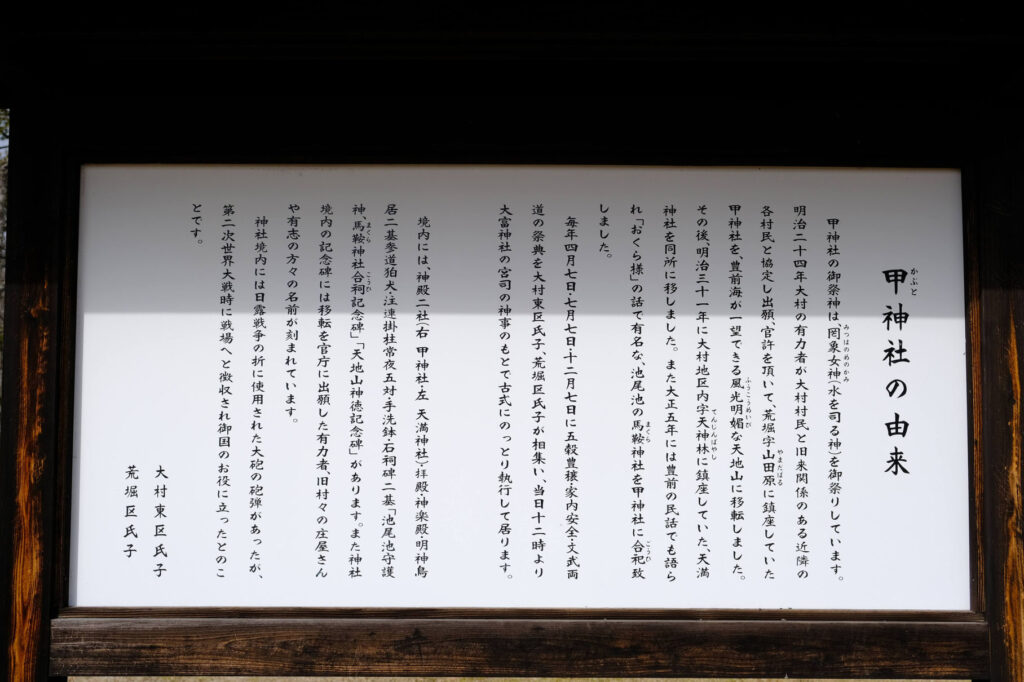 甲神社の由来
かぶと
甲神社の御祭神は、罔象女神(水を司る神)を御祭りしています。
みつはのめのかみ
明治二十四年大村の有力者が大村村民と旧来関係のある近隣の
各村民と協定し出願、官許を頂いて、荒堀字山田原に鎮座していた
やまたばる
甲神社を、豊前海が一望できる風光明媚な天地山に移転しました。
ふうこうめいび
その後、明治三十一年に大村地区内字天神林に鎮座していた、天満
てんじんばやし
神社を同所に移しました。また大正五年には豊前の民話でも語ら
れ「おくら様」の話で有名な、池尾池の馬鞍神社を甲神社に合祀致
まくら
こうひ
しました。
毎年四月七日・七月七日・十二月七日に五穀豊穣・家内安全・文武両
道の祭典を大村東区氏子、荒堀区氏子が相集い、当日十二時より
大富神社の宮司の神事のもとで古式にのっとり執行して居ります。
境内には、神殿二社(右 甲神社・左 天満神社)拝殿・神楽殿・明神鳥
居二基参道狛犬・注連掛柱常夜五対・手洗鉢・石祠碑二基「池尾池守護
神、馬鞍神社合祠記念碑」「天地山神徳記念碑」があります。また神社
まくら
こうひ
境内の記念碑には移転を官庁に出願した有力者、旧村々の庄屋さん
や有志の方々の名前が刻まれています。
神社境内には日露戦争の折に使用された大砲の砲弾があったが、
第二次世界大戦時に戦場へと徴収され御国のお役に立ったとのこ
とです。
大村東区氏子
荒堀区氏子